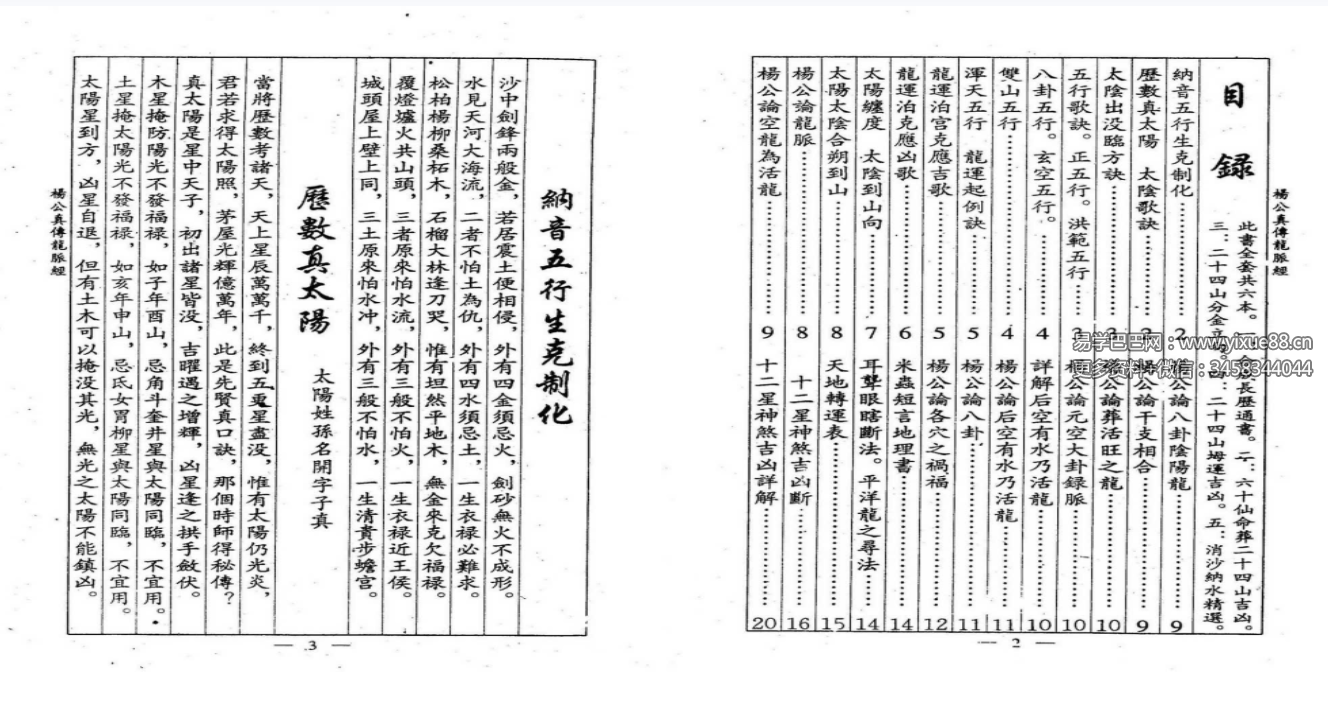 楊公真傳龍脈經
目錄
此書全套共六本。一：
長歷通書。二：六十仙命葬二十四山吉凶。
三：二十四山分金立
四：二十四山坶運吉凶。五：消沙納水精選。
納音五行生克制化……………2
論八卦陰陽龍……………9
歷數真太陽　太陰歌訣………2
楊公論干支相合……………9
太陰出没臨方訣……………3
楊公論葬活旺之龍……………10
五行歌訣。正五行。洪範五行…3
楊公論元空大卦録脈…………10
八卦五行。玄空五行。………4
詳解后空有水乃活龍…………10
雙山五行……………4
楊公論后空有水乃活龍………11
渾天五行　龍運起例訣………5
楊公論八卦……………11
龍運泊宫克應吉歌……………5
楊公論各穴之禍福……………12
龍運泊克應凶歌……………6
米蟲短言地理書……………14
太陽纏度　太陰到山向………7
耳聾眼瞎斷法。平洋龍之尋法…14
太陽太陰合朔到山……………8
天地轉運表……………15
楊公論龍脈……………8
十二星神煞吉凶斷……………16
楊公論空龍為活龍……………9
十二星神煞吉凶詳解…………20
— 2 —
易学巴巴网：www.yixue88.cn
更多资料+微信：3458344044
納音五行生克制化
沙中劍鋒兩般金，若居震土便相侵，外有四金須忌火，劍砂無火不成形。
水見天河大海流，二者不怕土為仇，外有四水須忌土，一生衣禄必難求。
松柏楊柳桑柘木，石榴大林逢刀哭，惟有坦然平地木，無金來克欠福禄。
覆燈爐火共山頭，三者原來怕水流，外有三般不怕火，一生衣禄近王侯。
城頭屋上壁上同，三土原來怕水冲，外有三般不怕水，一生清貴步蟾宫。
歷數真太陽　太陽姓孫名開字子真
當將歷數考諸天，天上星辰萬萬千，終到五更星盡没，惟有太陽仍光炎，
君若求得太陽照，茅屋光輝億萬年，此是先賢真口訣，那個時師得秘傳？
真太陽是星中天子，初出諸星皆没，吉曜遇之增輝，凶星逢之拱手斂伏。
木星掩防陽光不發福禄，如子年酉山，忌角斗奎井星與太陽同臨，不宜用。
土星掩太陽光不發福禄，如亥年申山，忌氐女胃柳星與太陽同臨，不宜用。
太陽星到方，凶星自退，但有土木可以掩没其光，無光之太陽不能鎮凶。
楊公真傳龍脈經
— 3 —